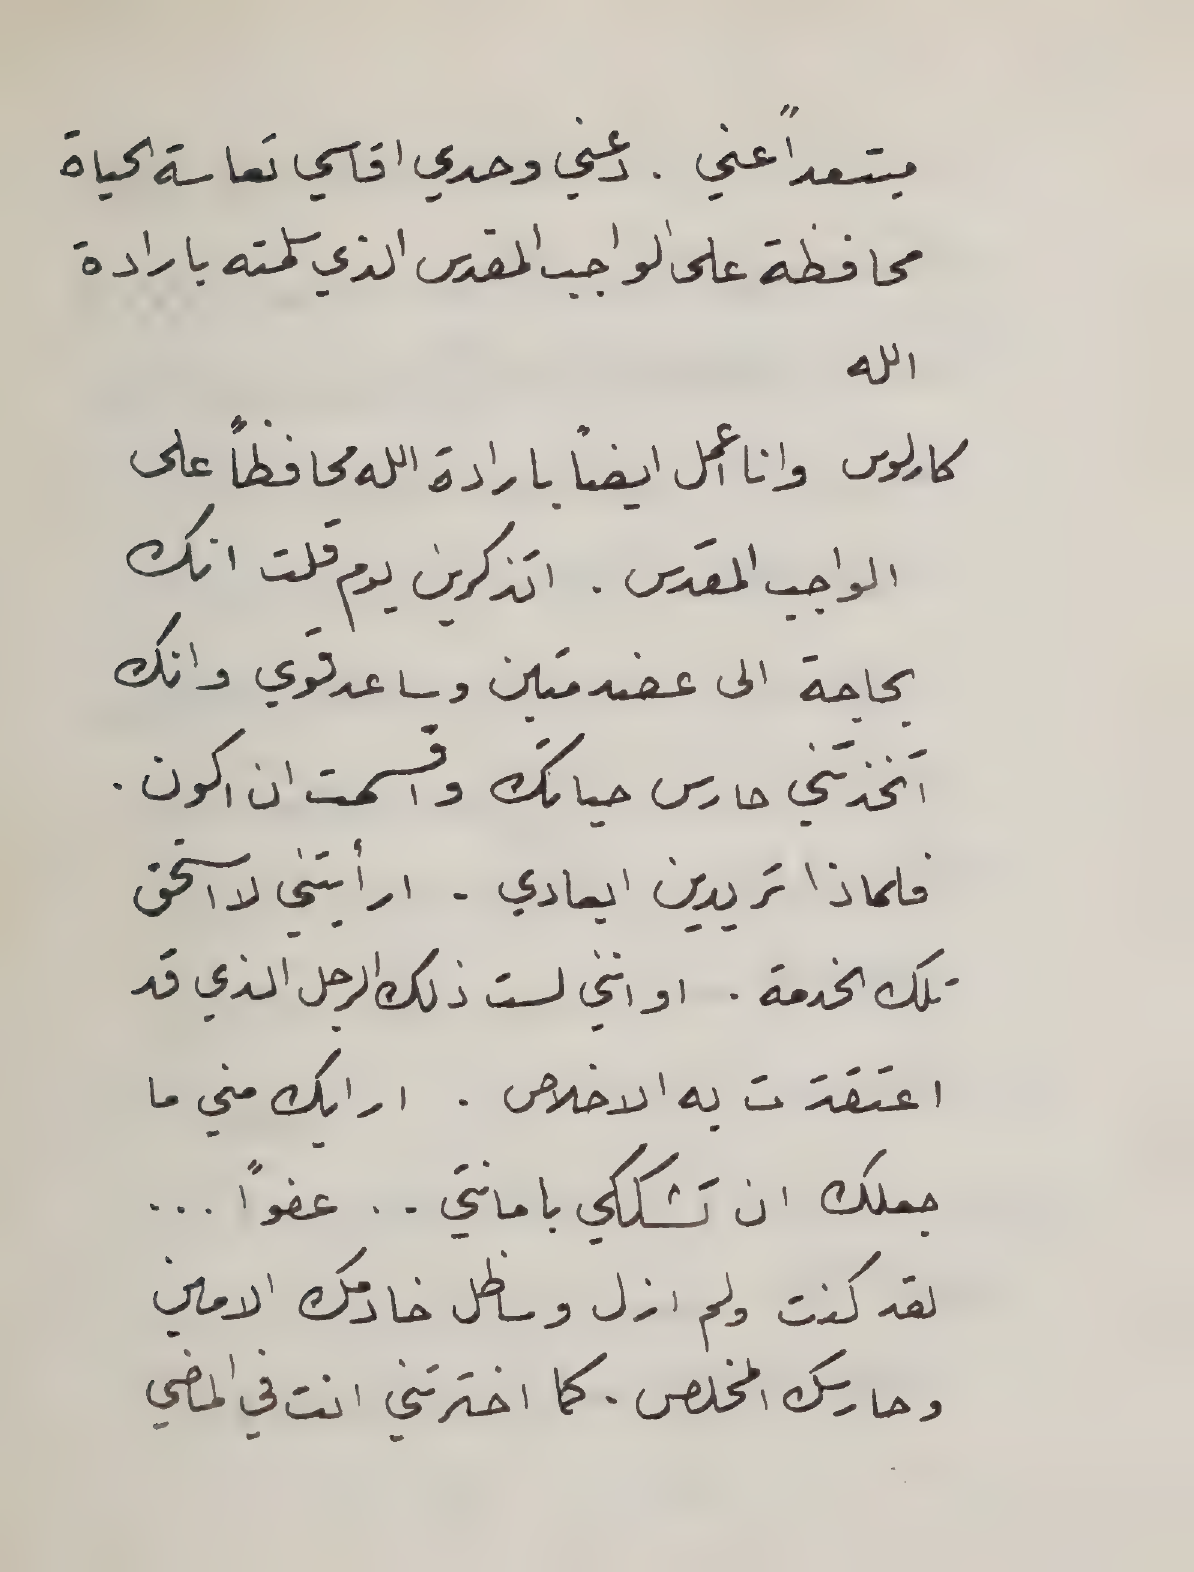 مبتعداً عني . دعني وحدي اقاسي تعاسة الحياة
محافظة على الواجب المقدس الذي سلمته بارادة
الله
كارلوس وانا اعمل ايضاً بارادة الله محافظاً على
الواجب المقدس . اتذكرين يوم قلت انك
بحاجة الى عضد متين وساعد قوي وانك
اتخذتني حارس حياتك واقسمت ان اكون .
فلماذا تريدين ابعادي - ارأيتني لا استحق
تلك الخدمة . او انني لست ذلك الرجل الذي قد
اعتقدت به الاخلاص . ارابك مني ما
جعلك ان تشككي بامانتي - . . عفواً ...
لقد كنت ولم ازل وساظل خادمك الامين
وحارسك المخلص . كما اخترتني انت في الماضي